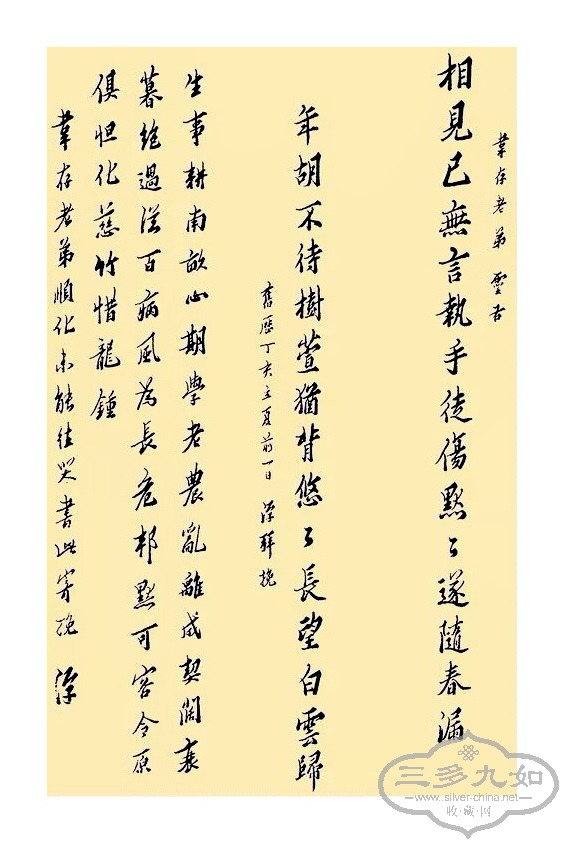 葦存老弟 靈右
相見已無言執手徒傷黙〻遂隨春漏
年胡不待樹萱猶背悠〻長望白雲歸
舊歷丁亥立夏前一日 浮拜挽
生事耕南畝心期學老農亂離成契闊衰
暮絶過從百病風為長危邦黙可容令原
俱怛化慈竹惜龍鍾
葦存老弟順化未能往哭書此寄挽 浮
三多九如
www.silver-china.net
收·藏·网